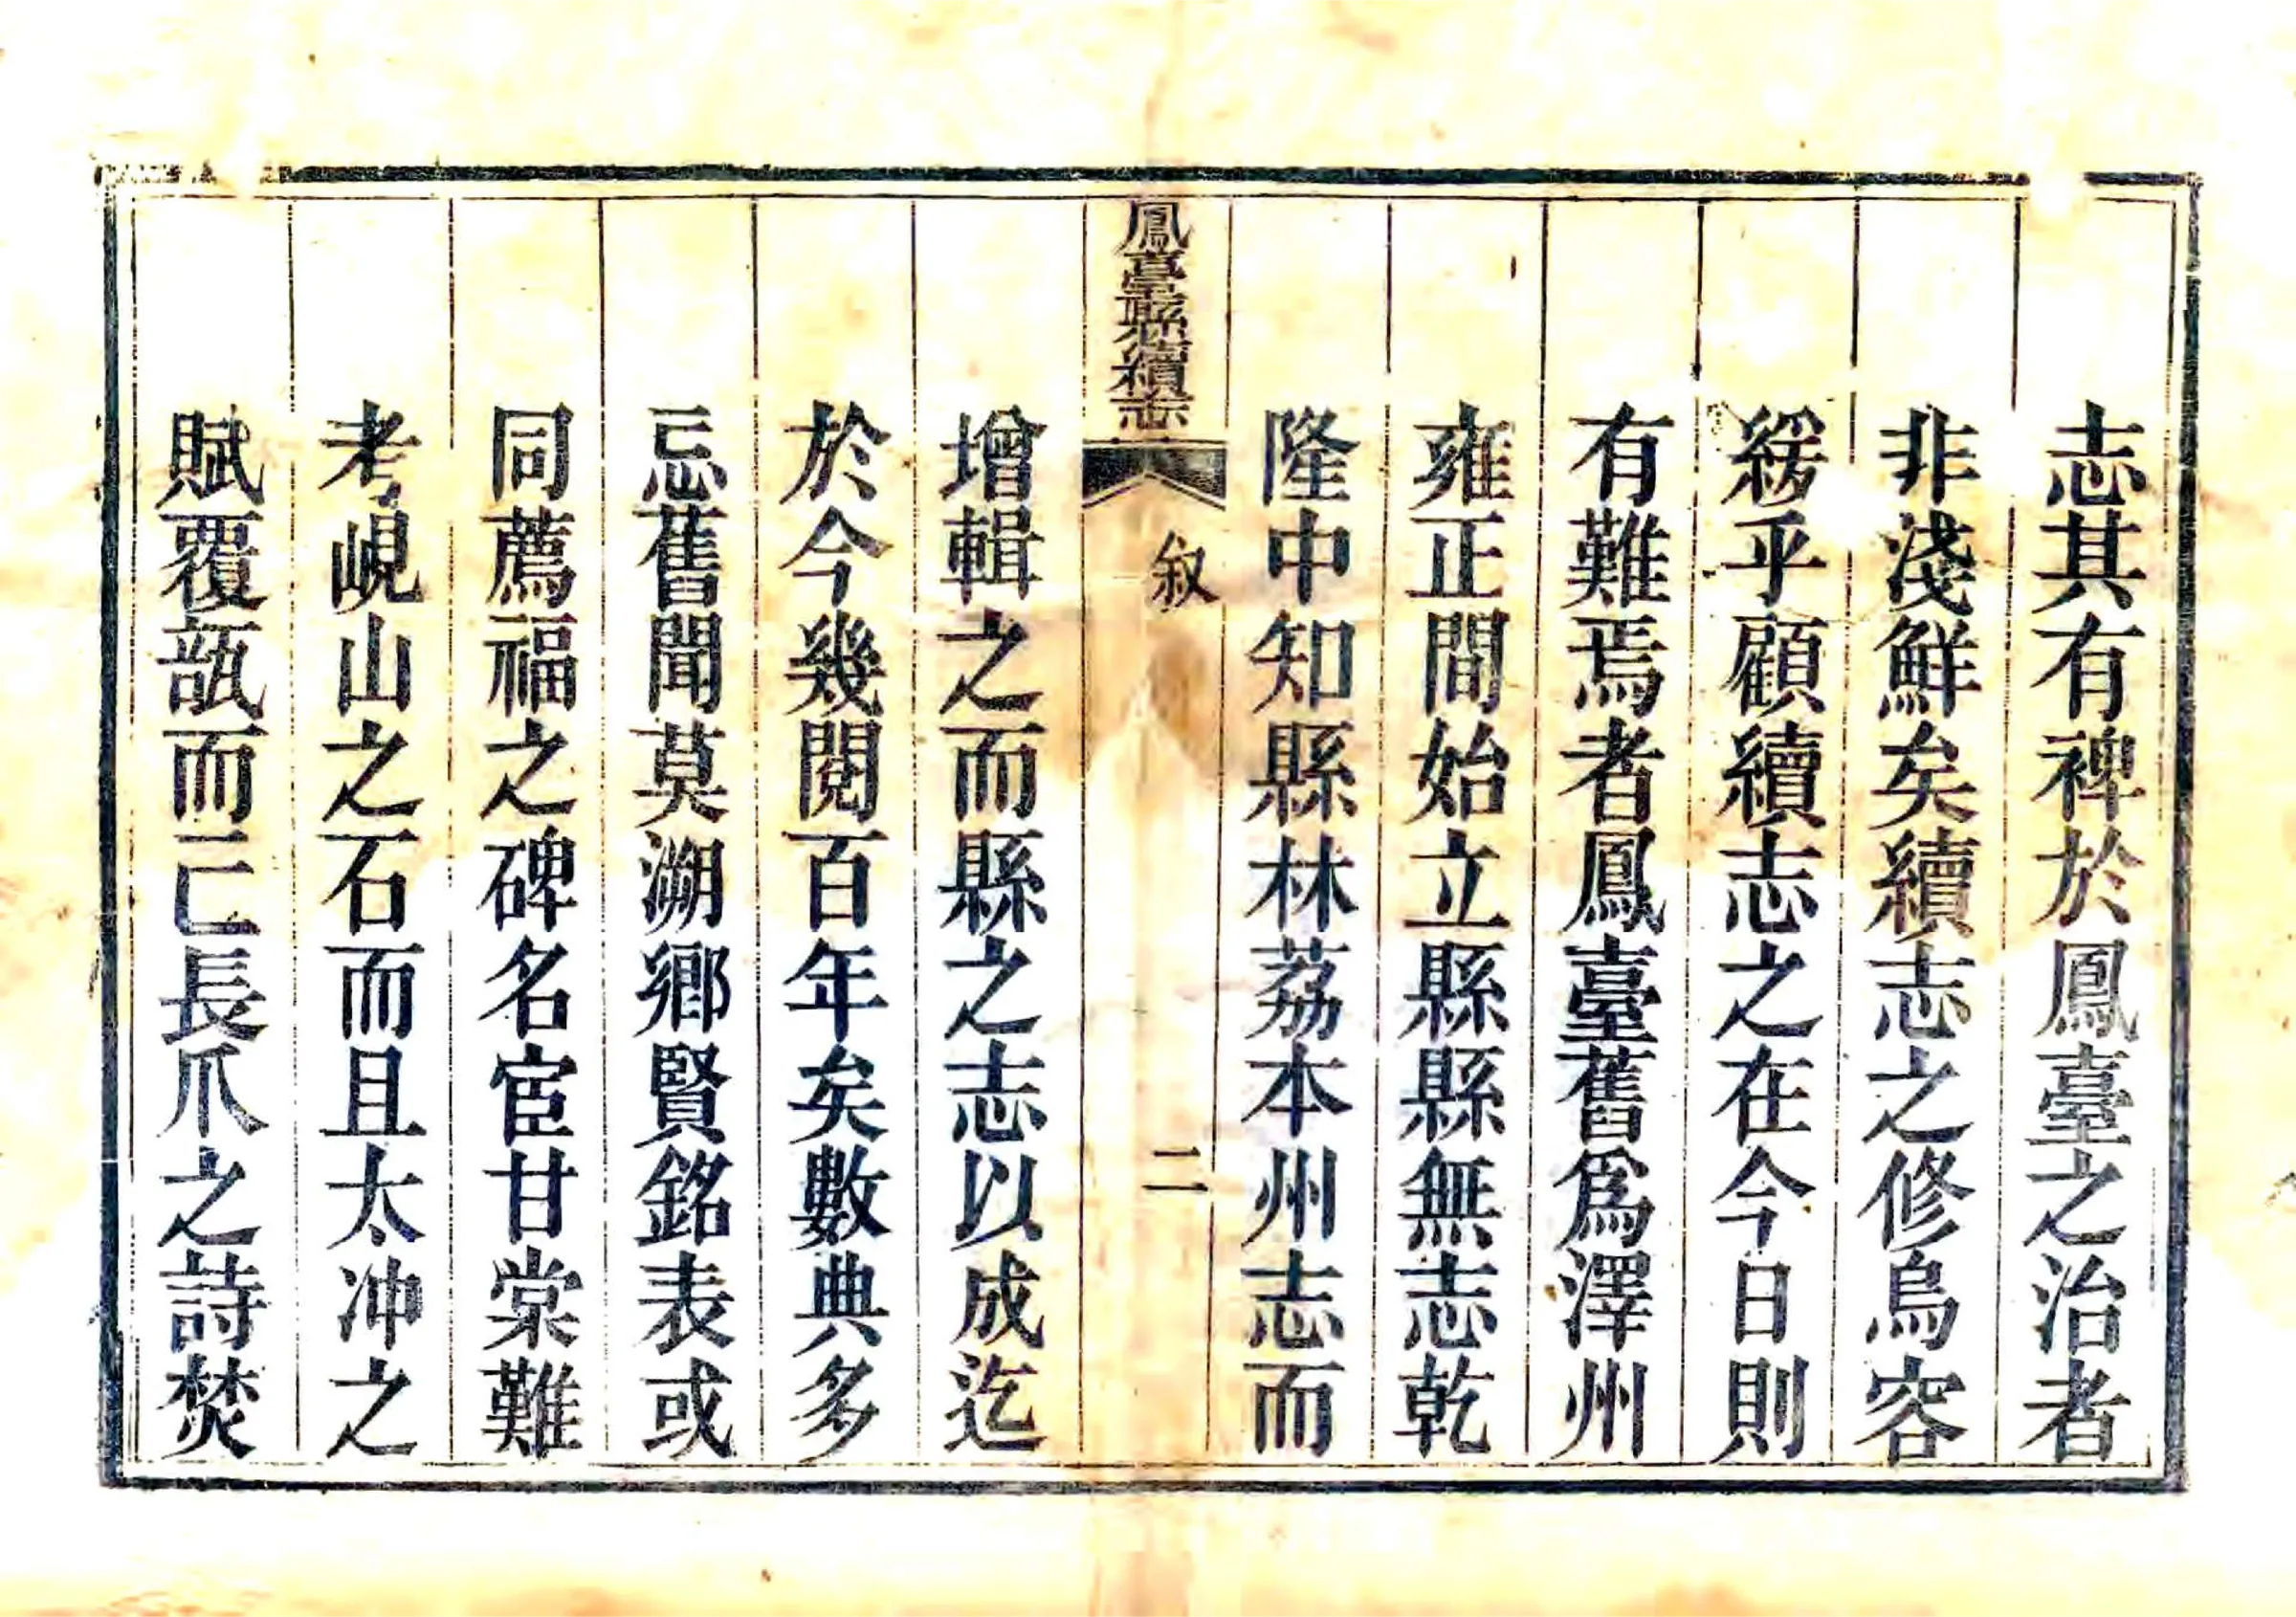 志其有裨於鳳臺之治者
非淺鮮矣續志之修烏容
緩乎顧續志之在今日則
有難焉者鳳臺舊爲澤州
雍正間始立縣縣無志乾
隆中知縣林荔本州志而
鳳臺縣續志
叙
二
增輯之而縣之志以成迄
於今幾閱百年矣數典多
忘舊聞莫溯鄉賢銘表或
同薦福之碑名宦甘棠難
考峴山之石而且太冲之
賦覆瓿而亡長爪之詩焚